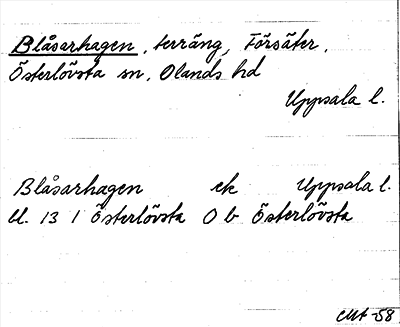 Blåsarhagen, terräng, Försäter,
Österlövsta sn, Olands hd
Uppsala l.
Blåsarhagen ek Uppsala l.
bl. 13 I Österlövsta O b Österlövsta
-58